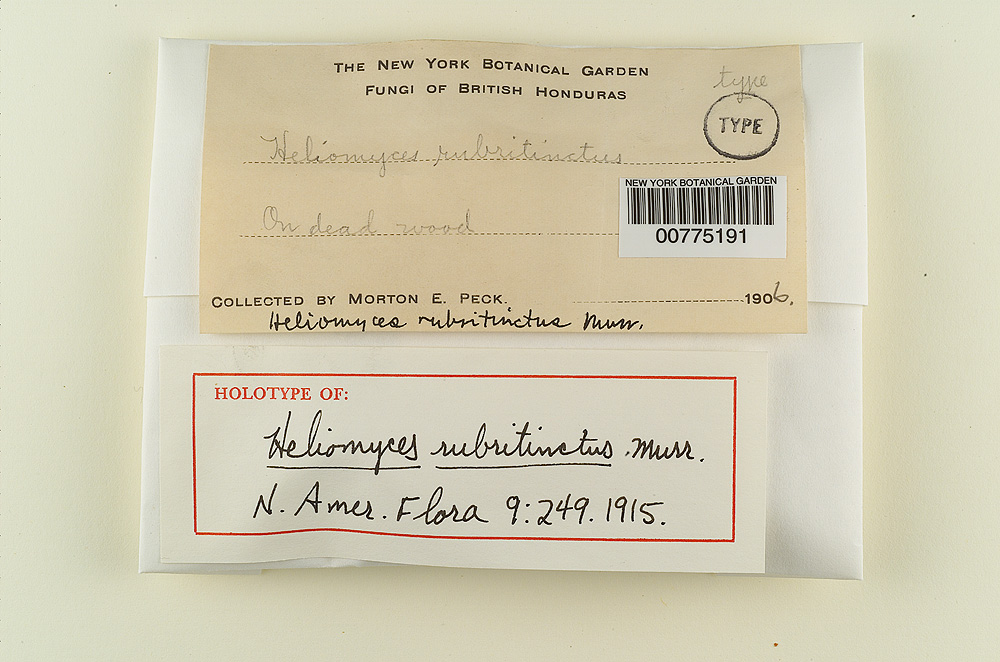 THE NEW YORK BOTANICAL GARDEN
FUNGI OF BRITISH HONDURAS
type
TYPE
Heliomyces rubritinctus
NEW YORK BOTANICAL GARDEN
00775191
On dead wood
COLLECTED BY MORTON E. PECK. 1906.
Heliomyces rubritinctus Murr.
HOLOTYPE OF:
Heliomyces rubritinctus Murr.
N. Amer. Flora 9:249. 1915.